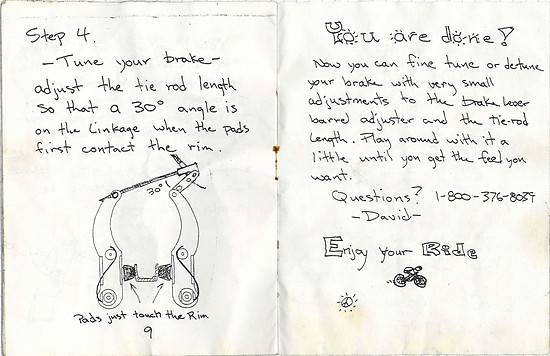 Step 4.
- Tune your brake -
adjust the tie rod length
so that a 30° angle is
on the linkage when the pads
first contact the rim.
30°
Pads just touch the Rim
9
You are done!
Now you can fine tune or detune
your brake with very small
adjustments to the brake lever
barrel adjuster and the tie-rod
length. Play around with it a
little until you get the feel you
want.
Questions? 1-800-376-8039
- David -
Enjoy your Ride